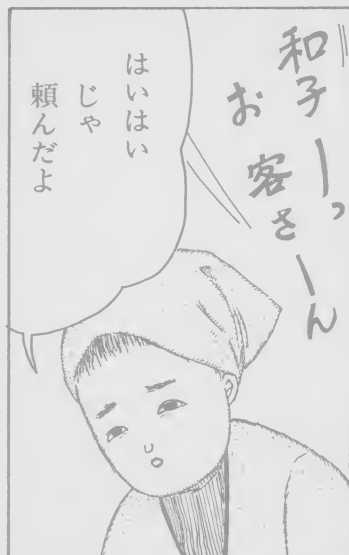 和子ーっ
お客さーん
はいはい
じゃ
頼んだよ